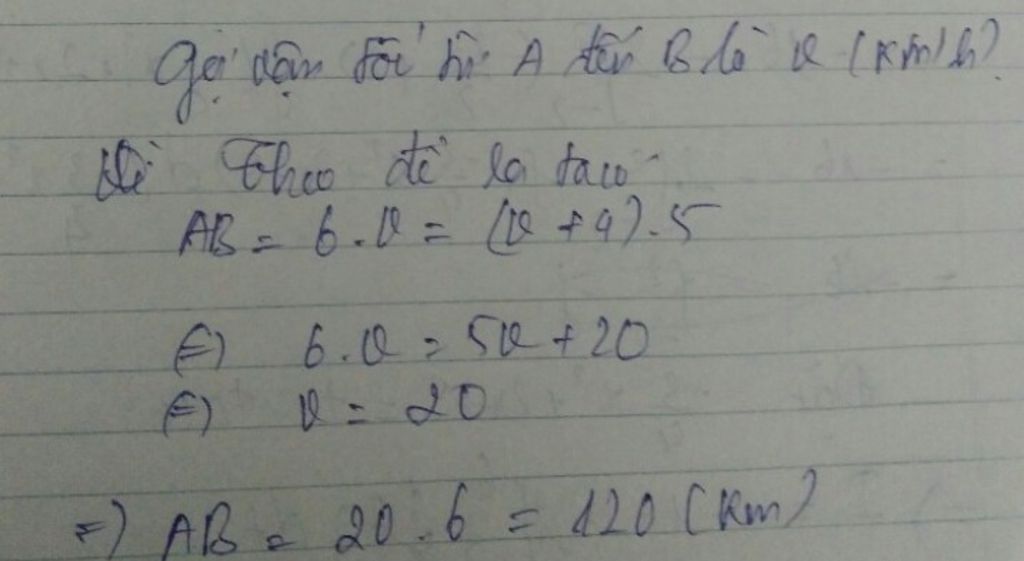 Gọi vận tốc từ A đến B là v (km/h)
Vì Theo đề ra ta có
AB = 6.v = (v + 4).5
<=> 6.v = 5v + 20
<=> v = 20
=> AB = 20.6 = 120 (km)